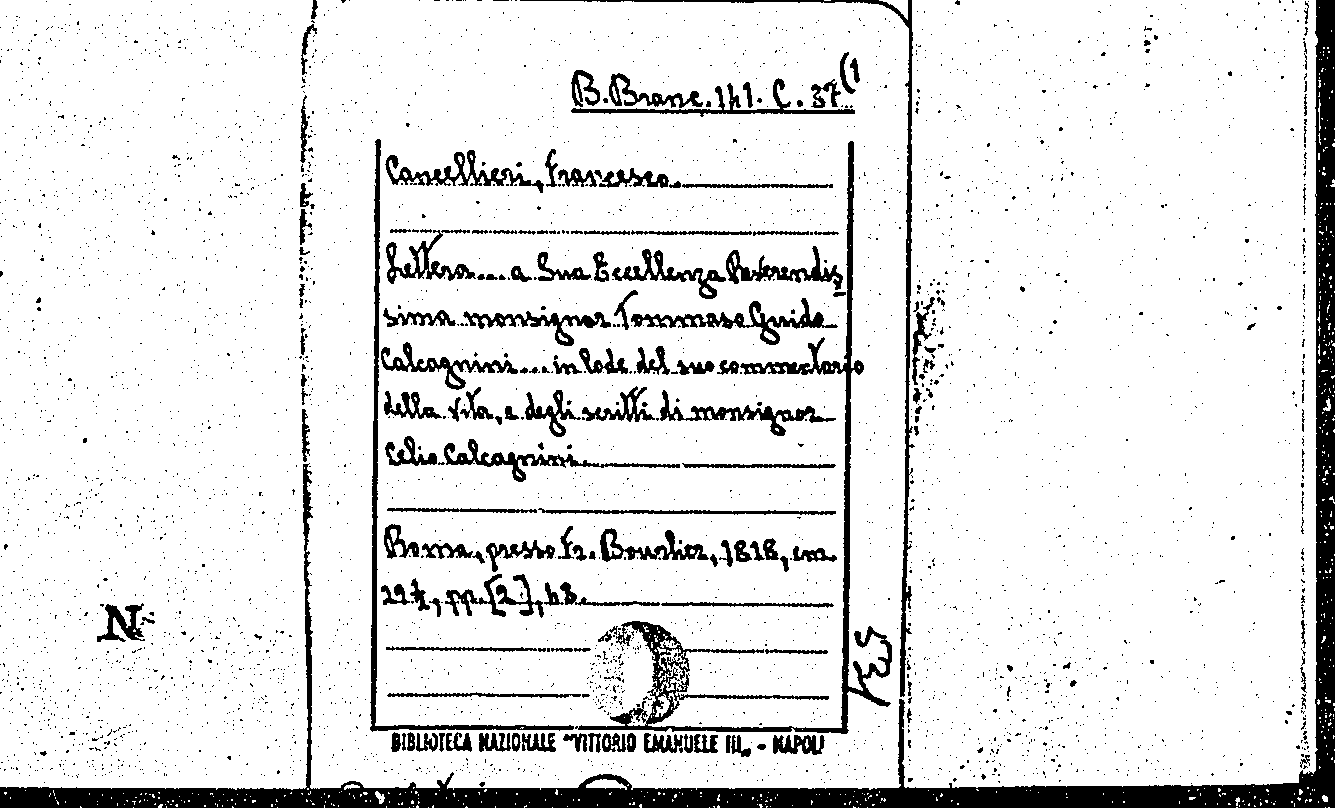 B. Branc. 141. C. 37 (1
Cancellieri, Francesco.
Lettera... a Sua Eccellenza Reverendis
sima monsignor Tommaso Guido
Calcagnini... in lode del suo commertario
della vita, e degli scritti di monsignor
Celio Calcagnini.
Roma, presso Fr. Bourlier, 1818, cm
22½, pp. [2], 48.
BIBLIOTECA NAZIONALE "VITTORIO EMANUELE III„ - NAPOLI
N